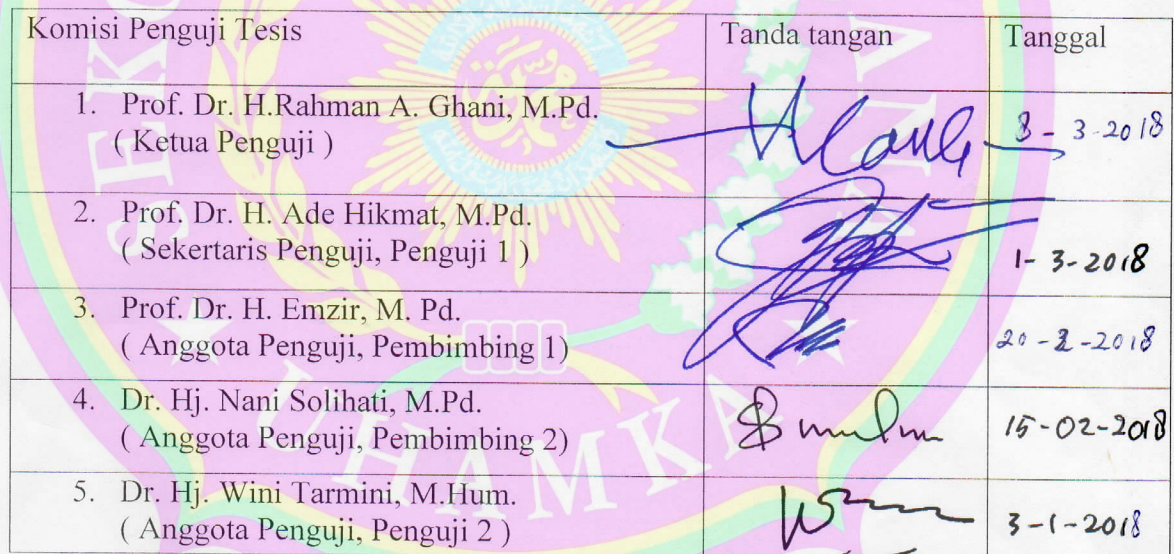 Komisi Penguji Tesis Tanda tangan Tanggal
1. Prof. Dr. H.Rahman A. Ghani, M.Pd.
( Ketua Penguji ) 8 - 3-2018
2. Prof. Dr. H. Ade Hikmat, M.Pd.
( Sekertaris Penguji, Penguji 1 ) 1- 3-2018
3. Prof. Dr. H. Emzir, M. Pd.
( Anggota Penguji, Pembimbing 1) 20-2-2018
4. Dr. Hj. Nani Solihati, M.Pd.
( Anggota Penguji, Pembimbing 2) 15-02-2018
5. Dr. Hj. Wini Tarmini, M.Hum.
( Anggota Penguji, Penguji 2 ) 3-1-2018
UHAMKA